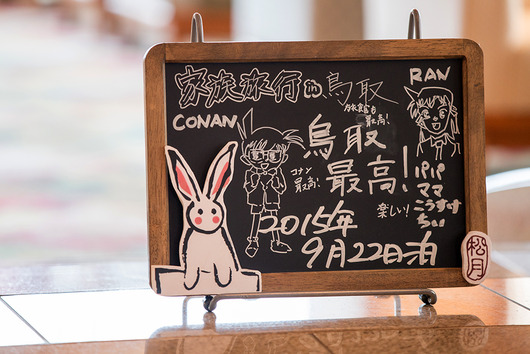 家族旅行 in 鳥取
旅館も
最高!
CONAN
RAN
鳥取
最高!
コナン
最高!
楽しい!
パパ
ママ
こうすけ
ちぃ
2015年
9月22日泊
松月